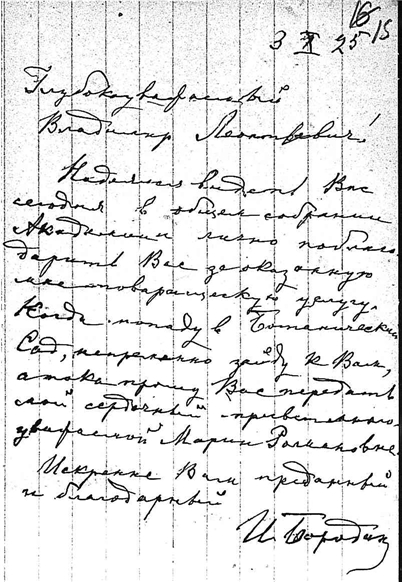 16
15
3 X 25
Глубокоуважаемый
Владимир Леонтьевич!
Надеялся видеть Вас
сегодня в общем собрании
Академии и лично поблаго-
дарить Вас за оказанную
мне товарищескую услугу.
Когда попаду в Ботанический
Сад, непременно зайду к Вам,
а пока прошу Вас передать
мой сердечный привет много-
уважаемой Марии Романовне.
Искренне Вам преданный
и благодарный
И. Бородин